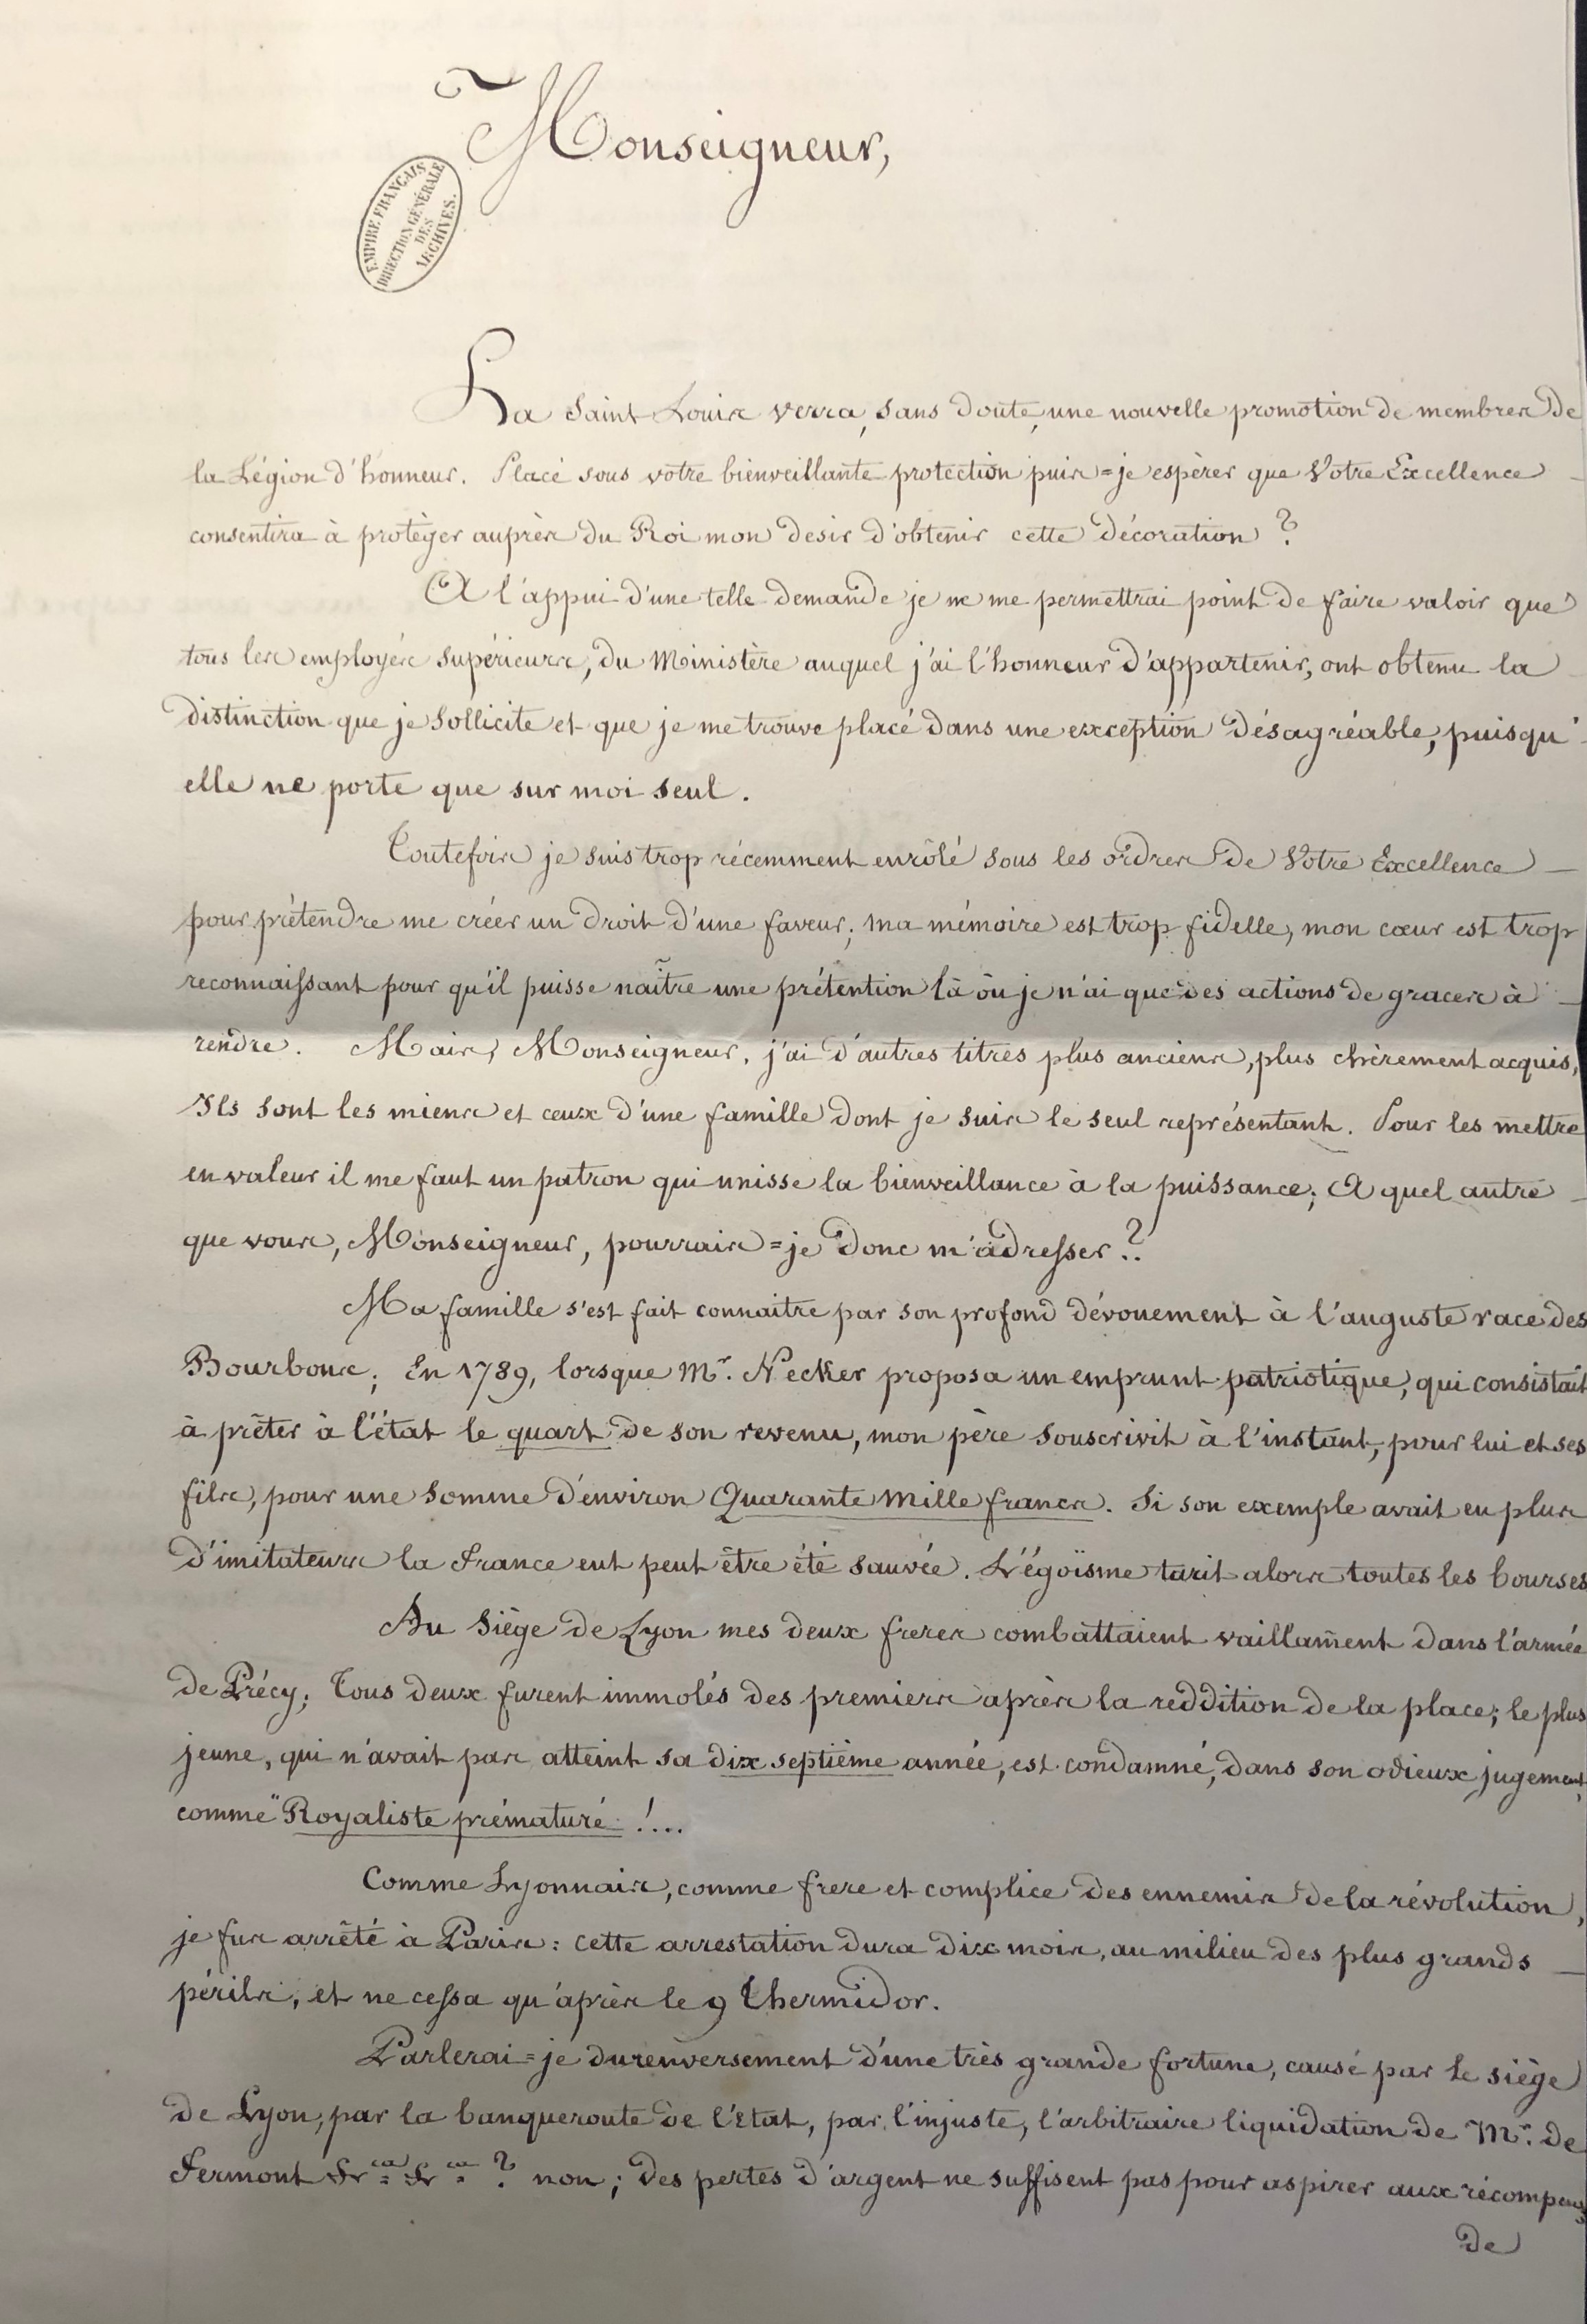 Monseigneur,
EMPIRE FRANÇAIS
DIRECTION GÉNÉRALE
DES
ARCHIVES.
La Saint Louis verra, sans doute, une nouvelle promotion de membres de
la Légion d'honneur. Placé sous votre bienveillante protection puis=je espérer que Votre Excellence
consentira à protèger auprès du Roi mon desir d'obtenir cette décoration ?
A l'appui d'une telle demande je ne me permettrai point de faire valoir que
tous les employés supérieurs, du Ministère auquel j'ai l'honneur d'appartenir, ont obtenu la
distinction que je sollicite et que je me trouve placé dans une exception désagréable, puisqu'
elle ne porte que sur moi seul.
Toutefois je suis trop récemment enrôlé sous les ordres de Votre Excellence
pour prétendre me créer un droit d'une faveur; ma mémoire est trop fidelle, mon cœur est trop
reconnaissant pour qu'il puisse naître une prétention là où je n'ai que des actions de graces à
rendre. Mais, Monseigneur, j'ai d'autres titres plus anciens, plus chèrement acquis,
Ils sont les miens et ceux d'une famille dont je suis le seul représentant. Pour les mettre
en valeur il me faut un patron qui unisse la bienveillance à la puissance; A quel autre
que vous, Monseigneur, pourrais=je donc m'adresser ?
Ma famille s'est fait connaitre par son profond dévouement à l'auguste race des
Bourbons; En 1789, lorsque Mr. Necker proposa un emprunt patriotique, qui consistait
à prêter à l'état le quart de son revenu, mon père souscrivit à l'instant, pour lui et ses
fils, pour une somme d'environ Quarante Mille francs. Si son exemple avait eu plus
d'imitateurs la France eut peut être été sauvée. L'égoïsme tarit alors toutes les bourses
Au Siège de Lyon mes deux freres combattaient vaillament dans l'armée
de Précy; Tous deux furent immolés des premiers après la reddition de la place; le plus
jeune, qui n'avait pas atteint sa dix septième année, est condamné, dans son odieux jugement,
comme "Royaliste prématuré !...
Comme Lyonnais, comme frere et complice des ennemis de la révolution,
je fus arrêté à Paris : cette arrestation dura dix mois, au milieu des plus grands
périls, et ne cessa qu'après le 9 Thermidor.
Parlerai=je du renversement d'une très grande fortune, causé par le siège
de Lyon, par la banqueroute de l'Etat, par l'injuste, l'arbitraire liquidation de Mr. de
Fermont &ca &ca ? non; des pertes d'argent ne suffisent pas pour aspirer aux récompenses
de